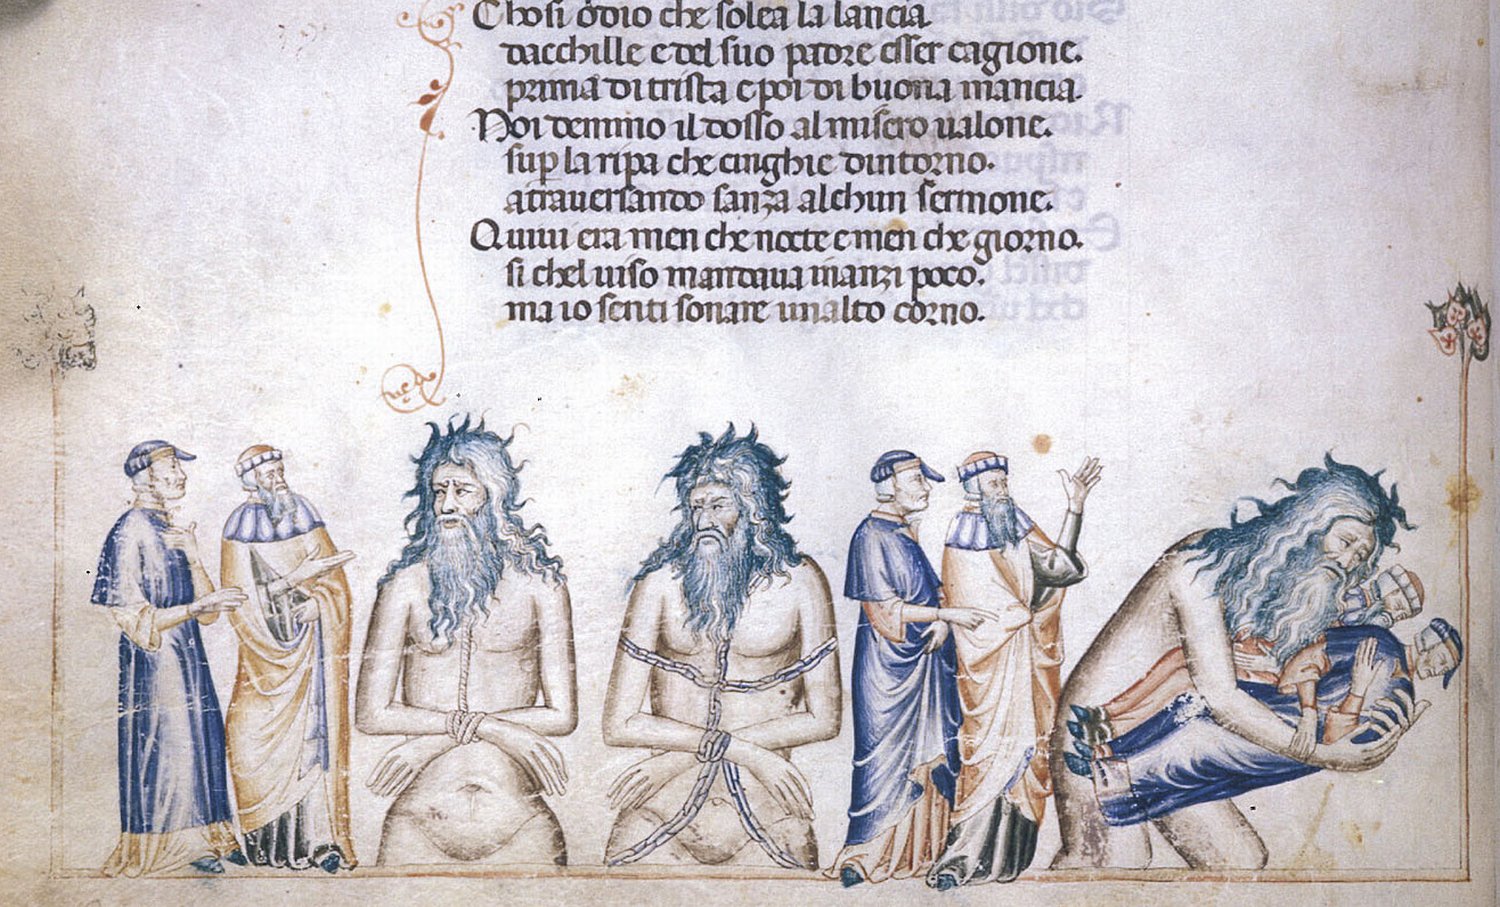 Chosi odio che solea la lancia
dacchille e del suo padre esser cagione.
prima di trista e poi di buona mancia.
Noi demmo il dosso al misero ualone.
sup la ripa che cinghie dintorno.
atrauersando sanza alchun sermone.
Quiui era men che nocte e men che giorno.
si chel uiso mandaua inanzi poco.
ma io senti sonare un alto corno.